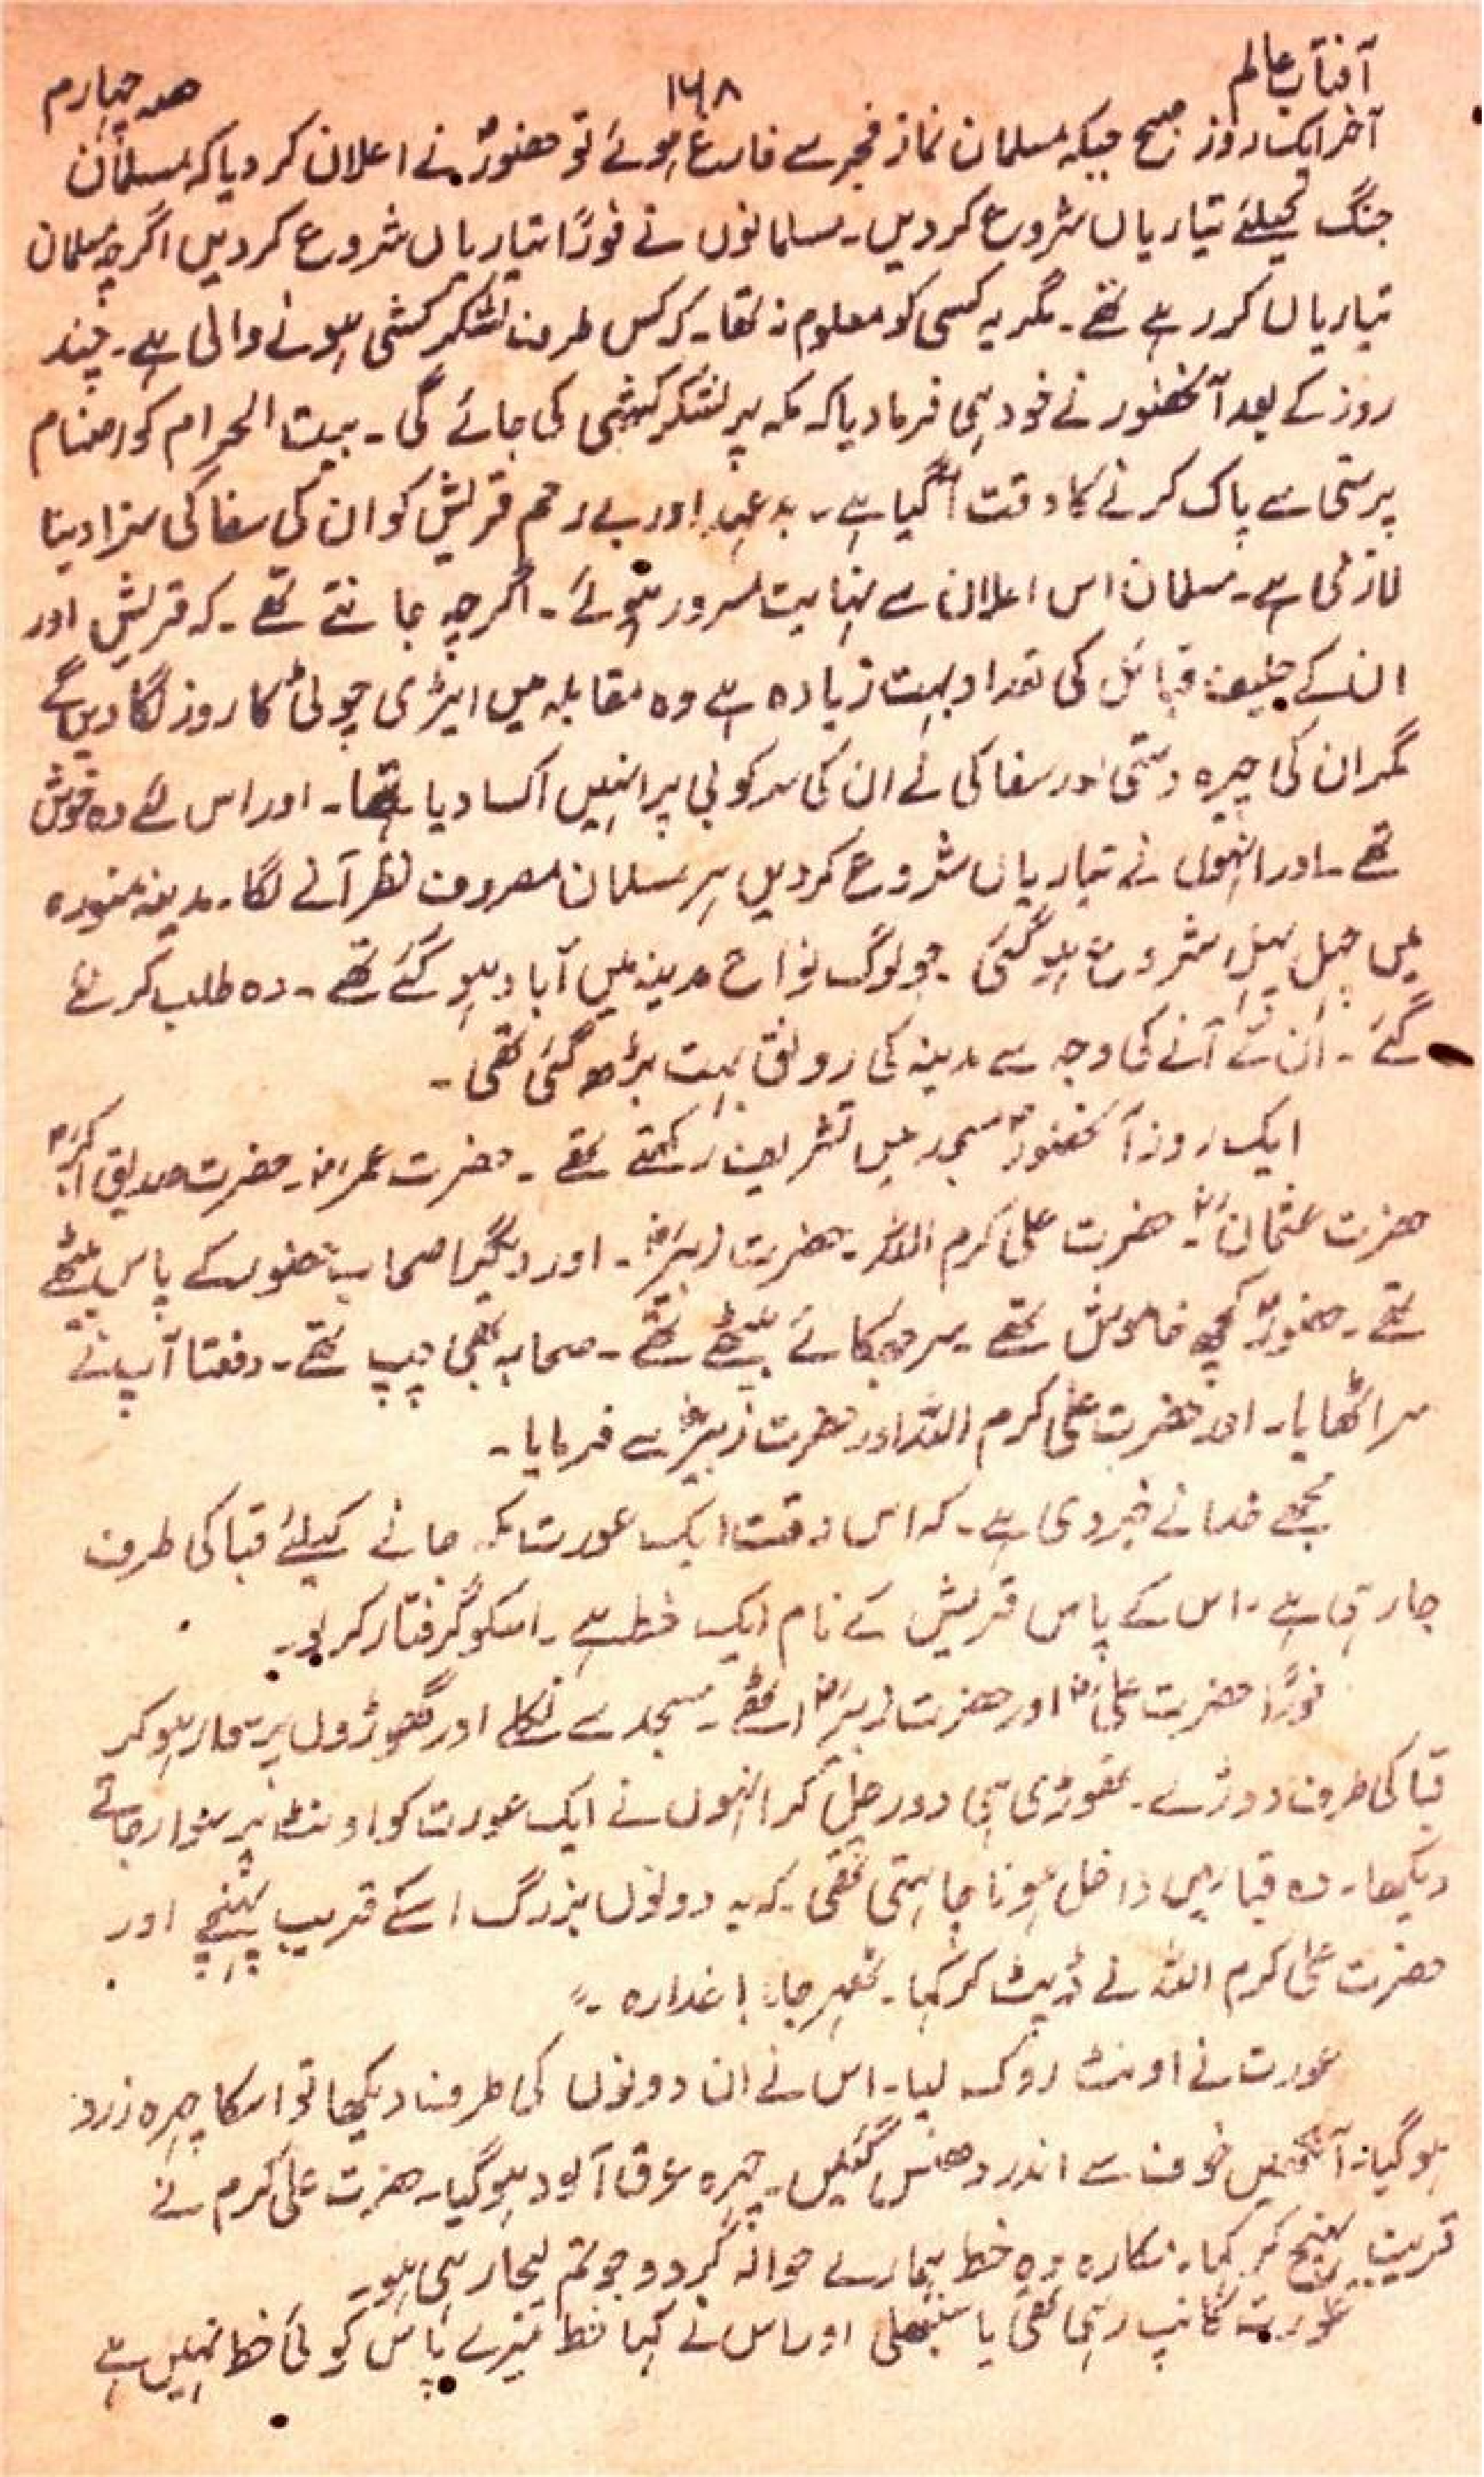 آفتاب عالم ۱۶۸ حصہ چہارم
آخر ایک روز صبح جبکہ مسلمان نماز فجر سے فارغ ہوئے تو حضورؐ نے اعلان کر دیا کہ مسلمان
جنگ کیلئے تیاریاں شروع کردیں۔ مسلمانوں نے فوراً تیاریاں شروع کردیں اگرچہ مسلمان
تیاریاں کر رہے تھے۔ مگر یہ کسی کو معلوم نہ تھا۔ کہ کس طرف لشکر کشی ہونے والی ہے۔ چند
روز کے بعد آنحضورؐ نے خود ہی فرما دیا کہ مکہ پر لشکر کشی کی جائے گی۔ بیت الحرام کو اصنام
پرستی سے پاک کرنے کا وقت آگیا ہے۔ بدعہد اور بے رحم قریش کو ان کی سفاکی سزا دینا
لازمی ہے۔ مسلمان اس اعلان سے نہایت مسرور ہوئے۔ اگرچہ جانتے تھے۔ کہ قریش اور
ان کے حلیف قبائل کی تعداد بہت زیادہ ہے وہ مقابلہ میں ایڑی چوٹی کا روز لگا دیں گے
مگر ان کی چیرہ دستی اور سفاکی نے ان کی سرکوبی پر انہیں اکسا دیا تھا۔ اور اس لئے وہ خوش
تھے۔ اور انہوں نے تیاریاں شروع کردیں ہر مسلمان مصروف نظر آنے لگا۔ مدینہ منورہ
میں چہل پہل شروع ہوگئی۔ جو لوگ نواح مدینہ میں آباد ہوگئے تھے۔ وہ طلب کر لئے
گئے۔ ان کے آنے کی وجہ سے مدینہ کی رونق بہت بڑھ گئی تھی۔
ایک روز آنحضورؐ مسجد میں تشریف رکھتے تھے۔ حضرت عمرؓ۔ حضرت صدیق اکبرؓ
حضرت عثمانؓ۔ حضرت علی کرم اللہ۔ حضرت زبیرؓ۔ اور دیگر اصحابہ حضور کے پاس بیٹھے
تھے۔ حضورؐ کچھ خاموش تھے۔ سر جھکائے بیٹھے تھے۔ صحابہ بھی چپ تھے۔ دفعتا آپ نے
سر اٹھایا۔ اور حضرت علی کرم اللہ اور حضرت زبیرؓ سے فرمایا۔
مجھے خدا نے خبر دی ہے۔ کہ اس وقت ایک عورت مکہ جانے کیلئے قبا کی طرف
جا رہی ہے۔ اس کے پاس قریش کے نام ایک خط ہے۔ اسکو گرفتار کر لو۔
فوراً حضرت علیؓ اور حضرت زبیرؓ اٹھے۔ مسجد سے نکلے اور گھوڑوں پر سوار ہوکر
قبا کی طرف دوڑے۔ تھوڑی ہی دور چل کر انہوں نے ایک عورت کو اونٹ پر سوار جاتے
دیکھا۔ وہ قبا میں داخل ہونا چاہتی تھی۔ کہ یہ دونوں بزرگ اسکے قریب پہنچے اور
حضرت علی کرم اللہ نے ڈپٹ کر کہا۔ ٹھہر جا! غدارہ۔"
عورت نے اونٹ روک لیا۔ اس نے ان دونوں کی طرف دیکھا تو اسکا چہرہ زرد
ہوگیا۔ آنکھیں خوف سے اندر دھنس گئیں۔ چہرہ عرق آلود ہوگیا۔ حضرت علی کرم نے
قریب پہنچ کر کہا۔ مکارہ وہ خط ہمارے حوالہ کردو جو تم لیجا رہی ہو۔
عورت کانپ رہی تھی یا سنبھلی اور اس نے کہا خط میرے پاس کوئی خط نہیں ہے